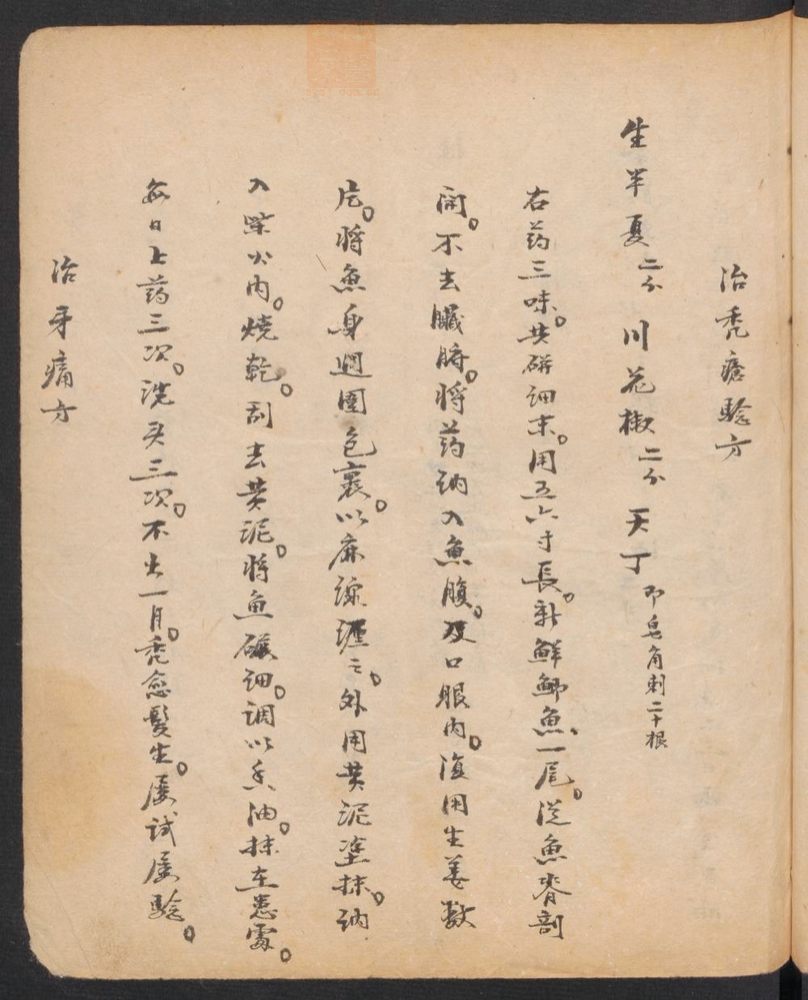 治秃瘡騐方
生半夏二分 川花椒二分 天丁即皂角刺二十根
右药三味。共研细末。用五六寸長。新鮮鲫魚一尾。從魚脊剖
開。不去臓腑。将药纳入魚腹。及口眼内。復用生姜数
片。将魚身週圍包裹。以麻線缠之。外用黄泥塗抹。纳
入柴火内。燒乾。刮去黄泥。将鱼碾细。调以香油。抹在患處。
每日上药三次。洗头三次。不出一月。秃愈髮生。屢試屢騐。
治牙痛方